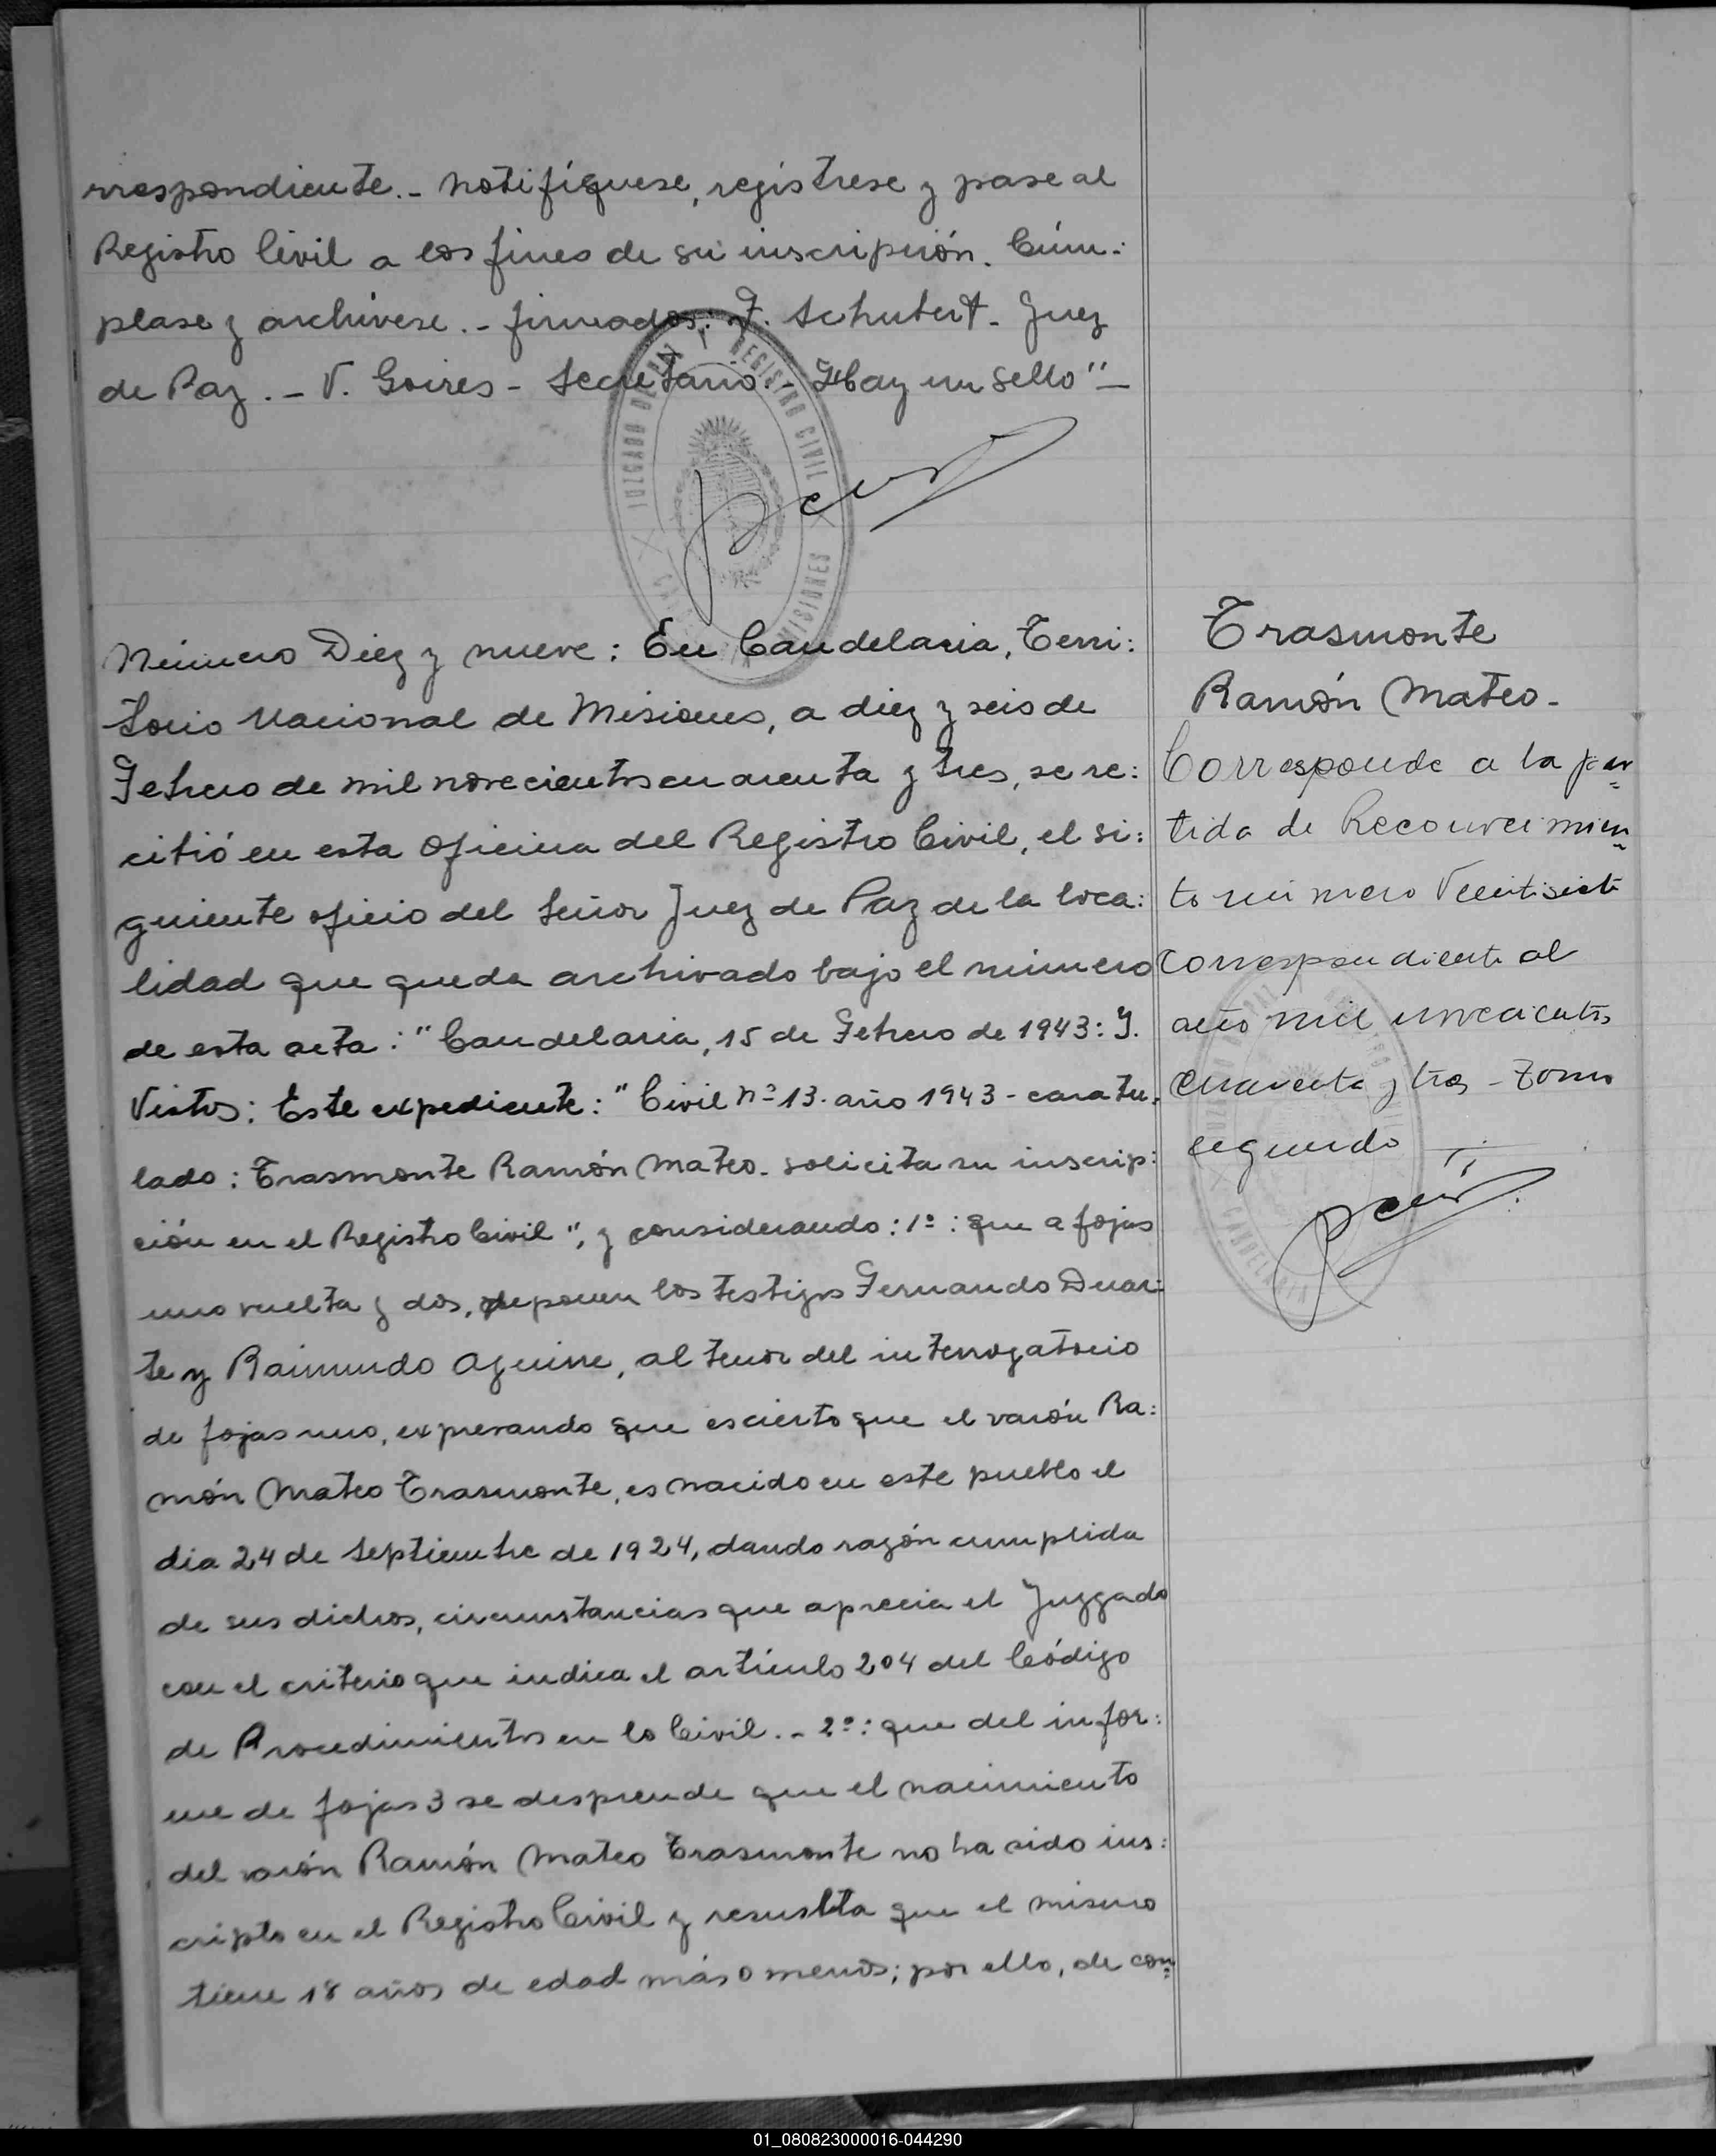 rrespondiente.- Notifíquese, regístrese y pase al
Registro Civil a los fines de su inscripción. Cúm:
plase y archívese.- firmados: F. Schubert - Juez
de Paz.- V. Goires - Secretario.- Hay un sello"-
JUZGADO DE PAZ Y REGISTRO CIVIL
MISIONES
Número Diez y nueve: En Candelaria, Terri:
torio Nacional de Misiones, a diez y seis de
Febrero de mil novecientos cuarenta y tres, se re:
cibió en esta Oficina del Registro Civil, el si:
guiente oficio del Señor Juez de Paz de la loca:
lidad que queda archivado bajo el número
de esta acta: "Candelaria, 15 de Febrero de 1943: Y.
Vistos: Este expediente: "Civil nº 13. año 1943 - caratu.
lado: Trasmonte Ramón Mateo. solicita su inscrip:
ción en el Registro Civil", y considerando: 1º: que a fojas
uno vuelta y dos, deponen los testigos Fernando Duar:
te y Raimundo Aguirre, al tenor del interrogatorio
de fojas uno, expresando que es cierto que el varón Ra:
món Mateo Trasmonte, es nacido en este pueblo el
dia 24 de Septiembre de 1924, dando razón cumplida
de sus dichos, circunstancias que aprecia el Juzgado
con el criterio que indica el artículo 204 del Código
de Procedimientos en lo Civil.- 2º: que del infor:
me de fojas 3 se desprende que el nacimiento
del varón Ramón Mateo Trasmonte no ha sido ins:
cripto en el Registro Civil y resuslta que el mismo
tiene 18 años de edad más o menos; por ello, de con=
Trasmonte
Ramón Mateo.-
Corresponde a la par=
tida de Reconocimien=
to número Veintisiete
correspondiente al
año mil novecientos
cuarenta y tres - tomo
segundo
CANDELARIA
01_080823000016-044290